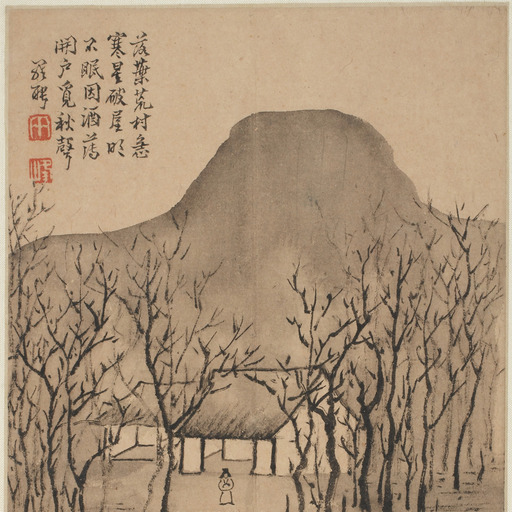 落葉荒村急
寒星破屋明
不眠因酒薄
開户覓秋聲
羅聘
兩
峰